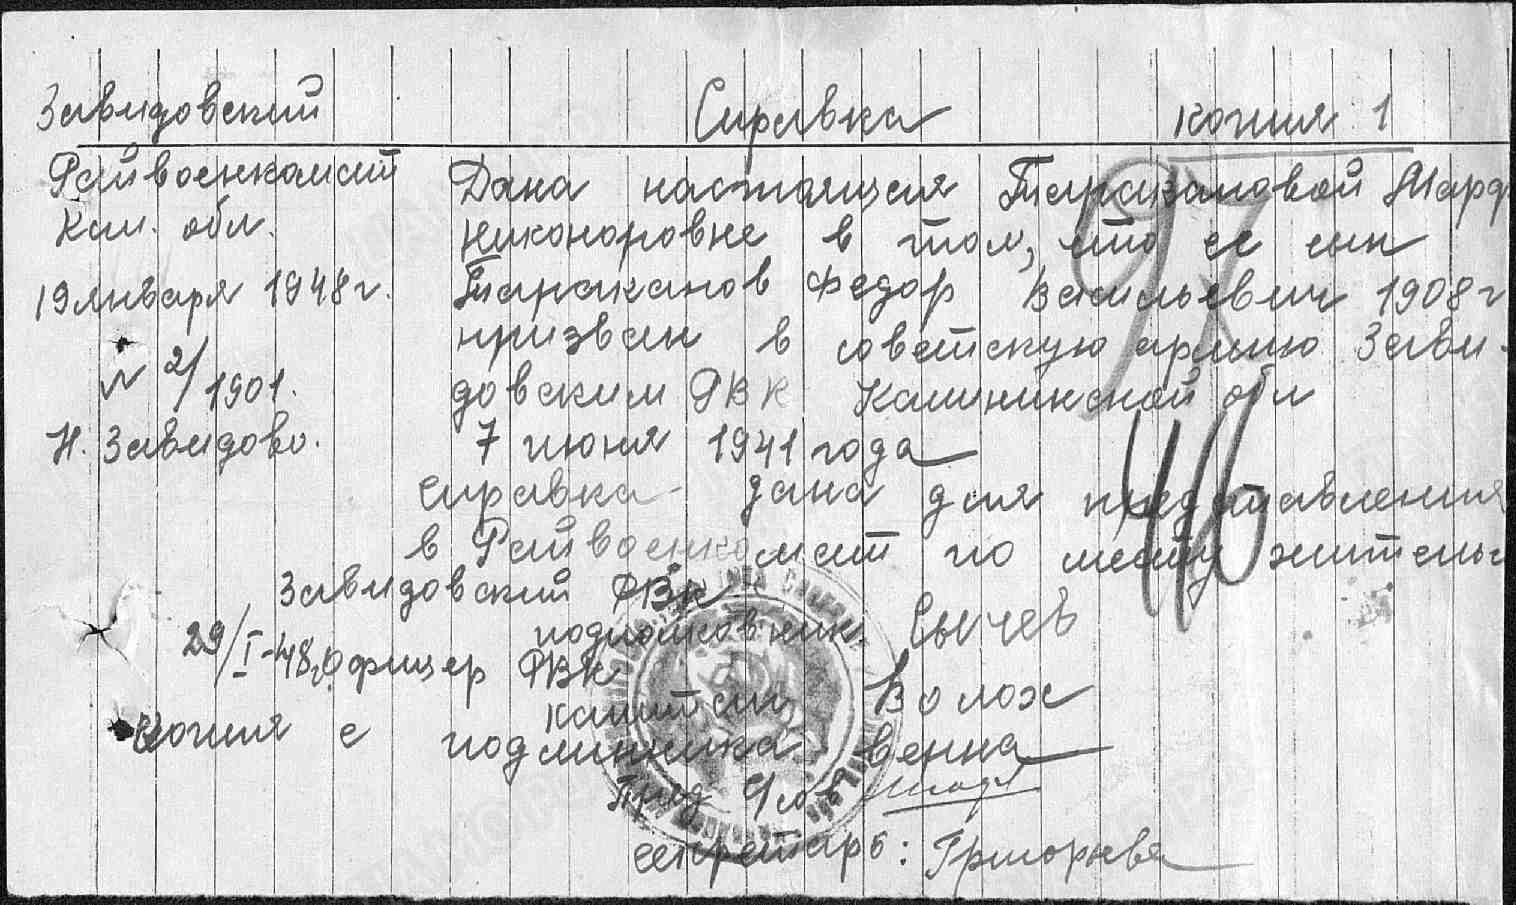 Завидовский
Райвоенкомат
Кал. обл.
19 января 1948 г.
№ 2/1901.
Н. Завидово.
Справка копия 1
Дана настоящая Таракановой Марф
Никоноровне в том, что ее сын
Тараканов Федор Васильевич 1908 г
призван в советскую армию Зави-
довским РВК Калининской обл
7 июня 1941 года
справка дана для предъявления
в Райвоенкомат по месту жительс
Завидовский РВК
подполковник Сычев
29/I-48г. Офицер РВК
капитан Волох
Копия с подлинника верна
Пред
секретарь: Григорьева
46